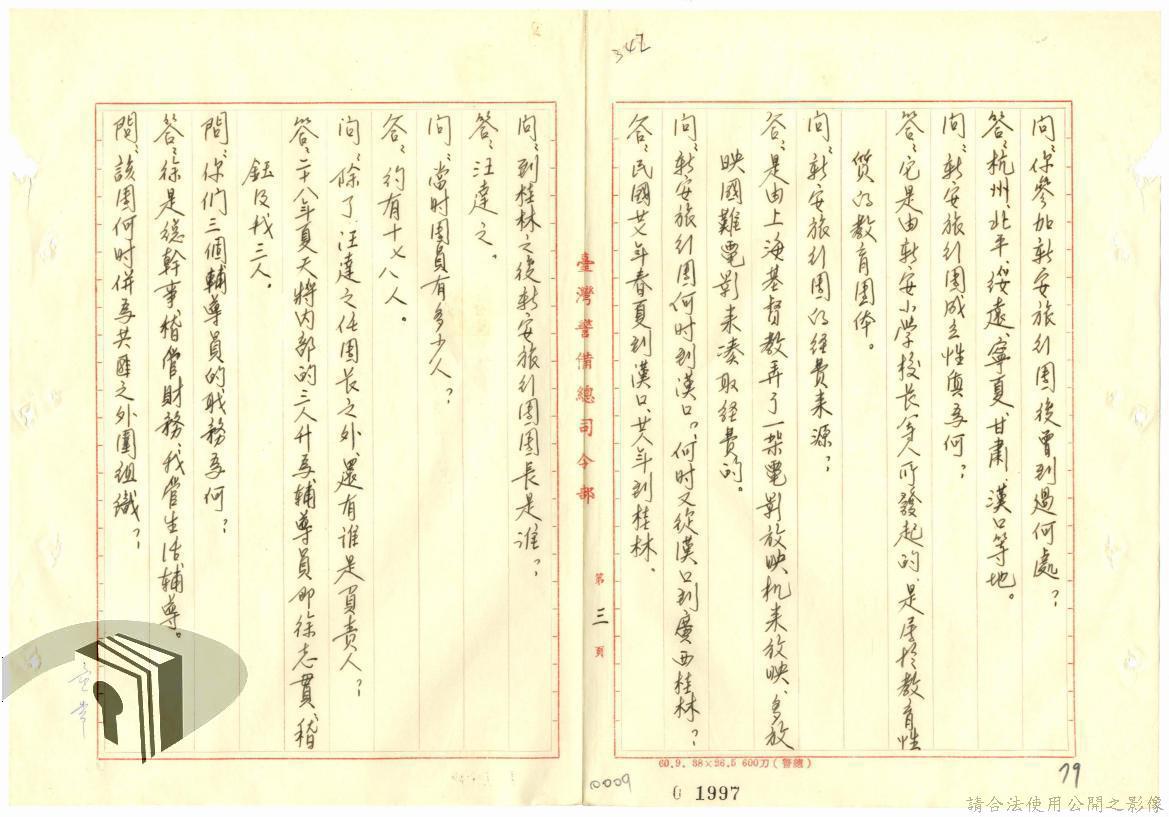 342
问：你參加新安旅行團後曾到過何處？
答：杭州、北平、綏遠、寧夏、甘肅、漢口等地。
问：新安旅行團成立性質為何？
答：它是由新安小學校長等人所發起的，是屬於教育性
質的教育團体。
问：新安旅行團的経費来源？
答：是由上海基督教弄了一架電影放映机来放映、多放
映國難電影来凑取経費的。
问：新安旅行團何时到漢口，何时又從漢口到廣西桂林？
答：民國廿七年春夏到漢口、廿八年到桂林。
臺灣警備總司令部
第三頁
问：到桂林之後新安旅行團團長是谁？
答：汪達之。
问：當时團員有多少人？
答：約有十七八人。
问：除了汪達之任團長之外，還有谁是負責人？
答：二十八年夏天將内部的三人升為輔導員即徐志貫、稽
鈺及我三人。
問：你们三個輔導員的职務為何？
答：徐是總幹事稽管財務、我管生活輔導。
問：該團何时併為共匪之外圍組織？
60.9. 38×26.5 600刀（警總）
0009
0 1997
79
請合法使用公開之影像